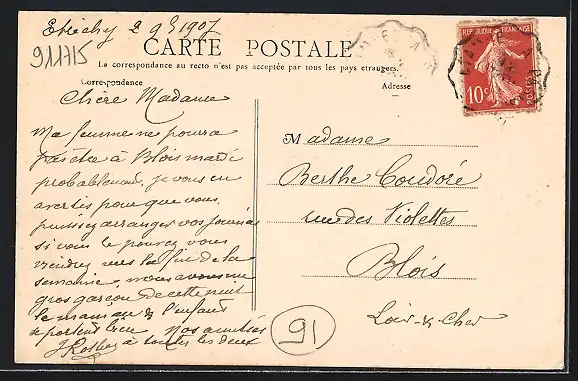 Etréchy 2 9bre 1907
911715
CARTE POSTALE
La correspondance au recto n'est pas acceptée par tous les pays etrangers.
Correspondance
Adresse
REPUBLIQUE FRANÇAISE
10c
POSTES
Chère Madame
Ma femme ne pourra
pas être à Blois mardi
probablement, je vous en
avertis pour que vous
puissiez arranger vos journées
si vous le pouvez vous
viendrez vers la fin de la
semaine, nous avons un
gros garçon de cette nuit
le maman & l'enfant
se portent bien Nos amitiés
à toutes les deux
Madame
Berthe Coudoré
rue des Violettes
Blois
Loir-&-Cher
91